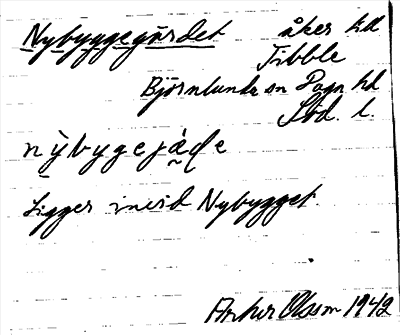 Nybyggegärdet åker hd
Tibble
Björnlunda sn Daga hd
Söd. l.
nỳbygejäḍe
Ligger invid Nybygget.
Arthur Olsson 1942